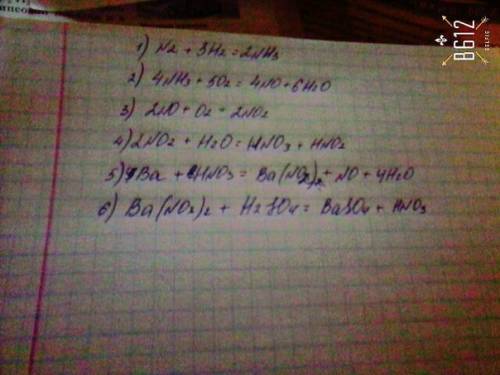 1) N2 + 3H2 = 2NH3
2) 4NH3 + 5O2 = 4NO + 6H2O
3) 2NO + O2 = 2NO2
4) 2NO2 + H2O = HNO3 + HNO2
5) Ba + 8HNO3 = Ba(NO3)2 + NO + 4H2O
6) Ba(NO3)2 + H2SO4 = BaSO4 + HNO3
B612
SELFIE